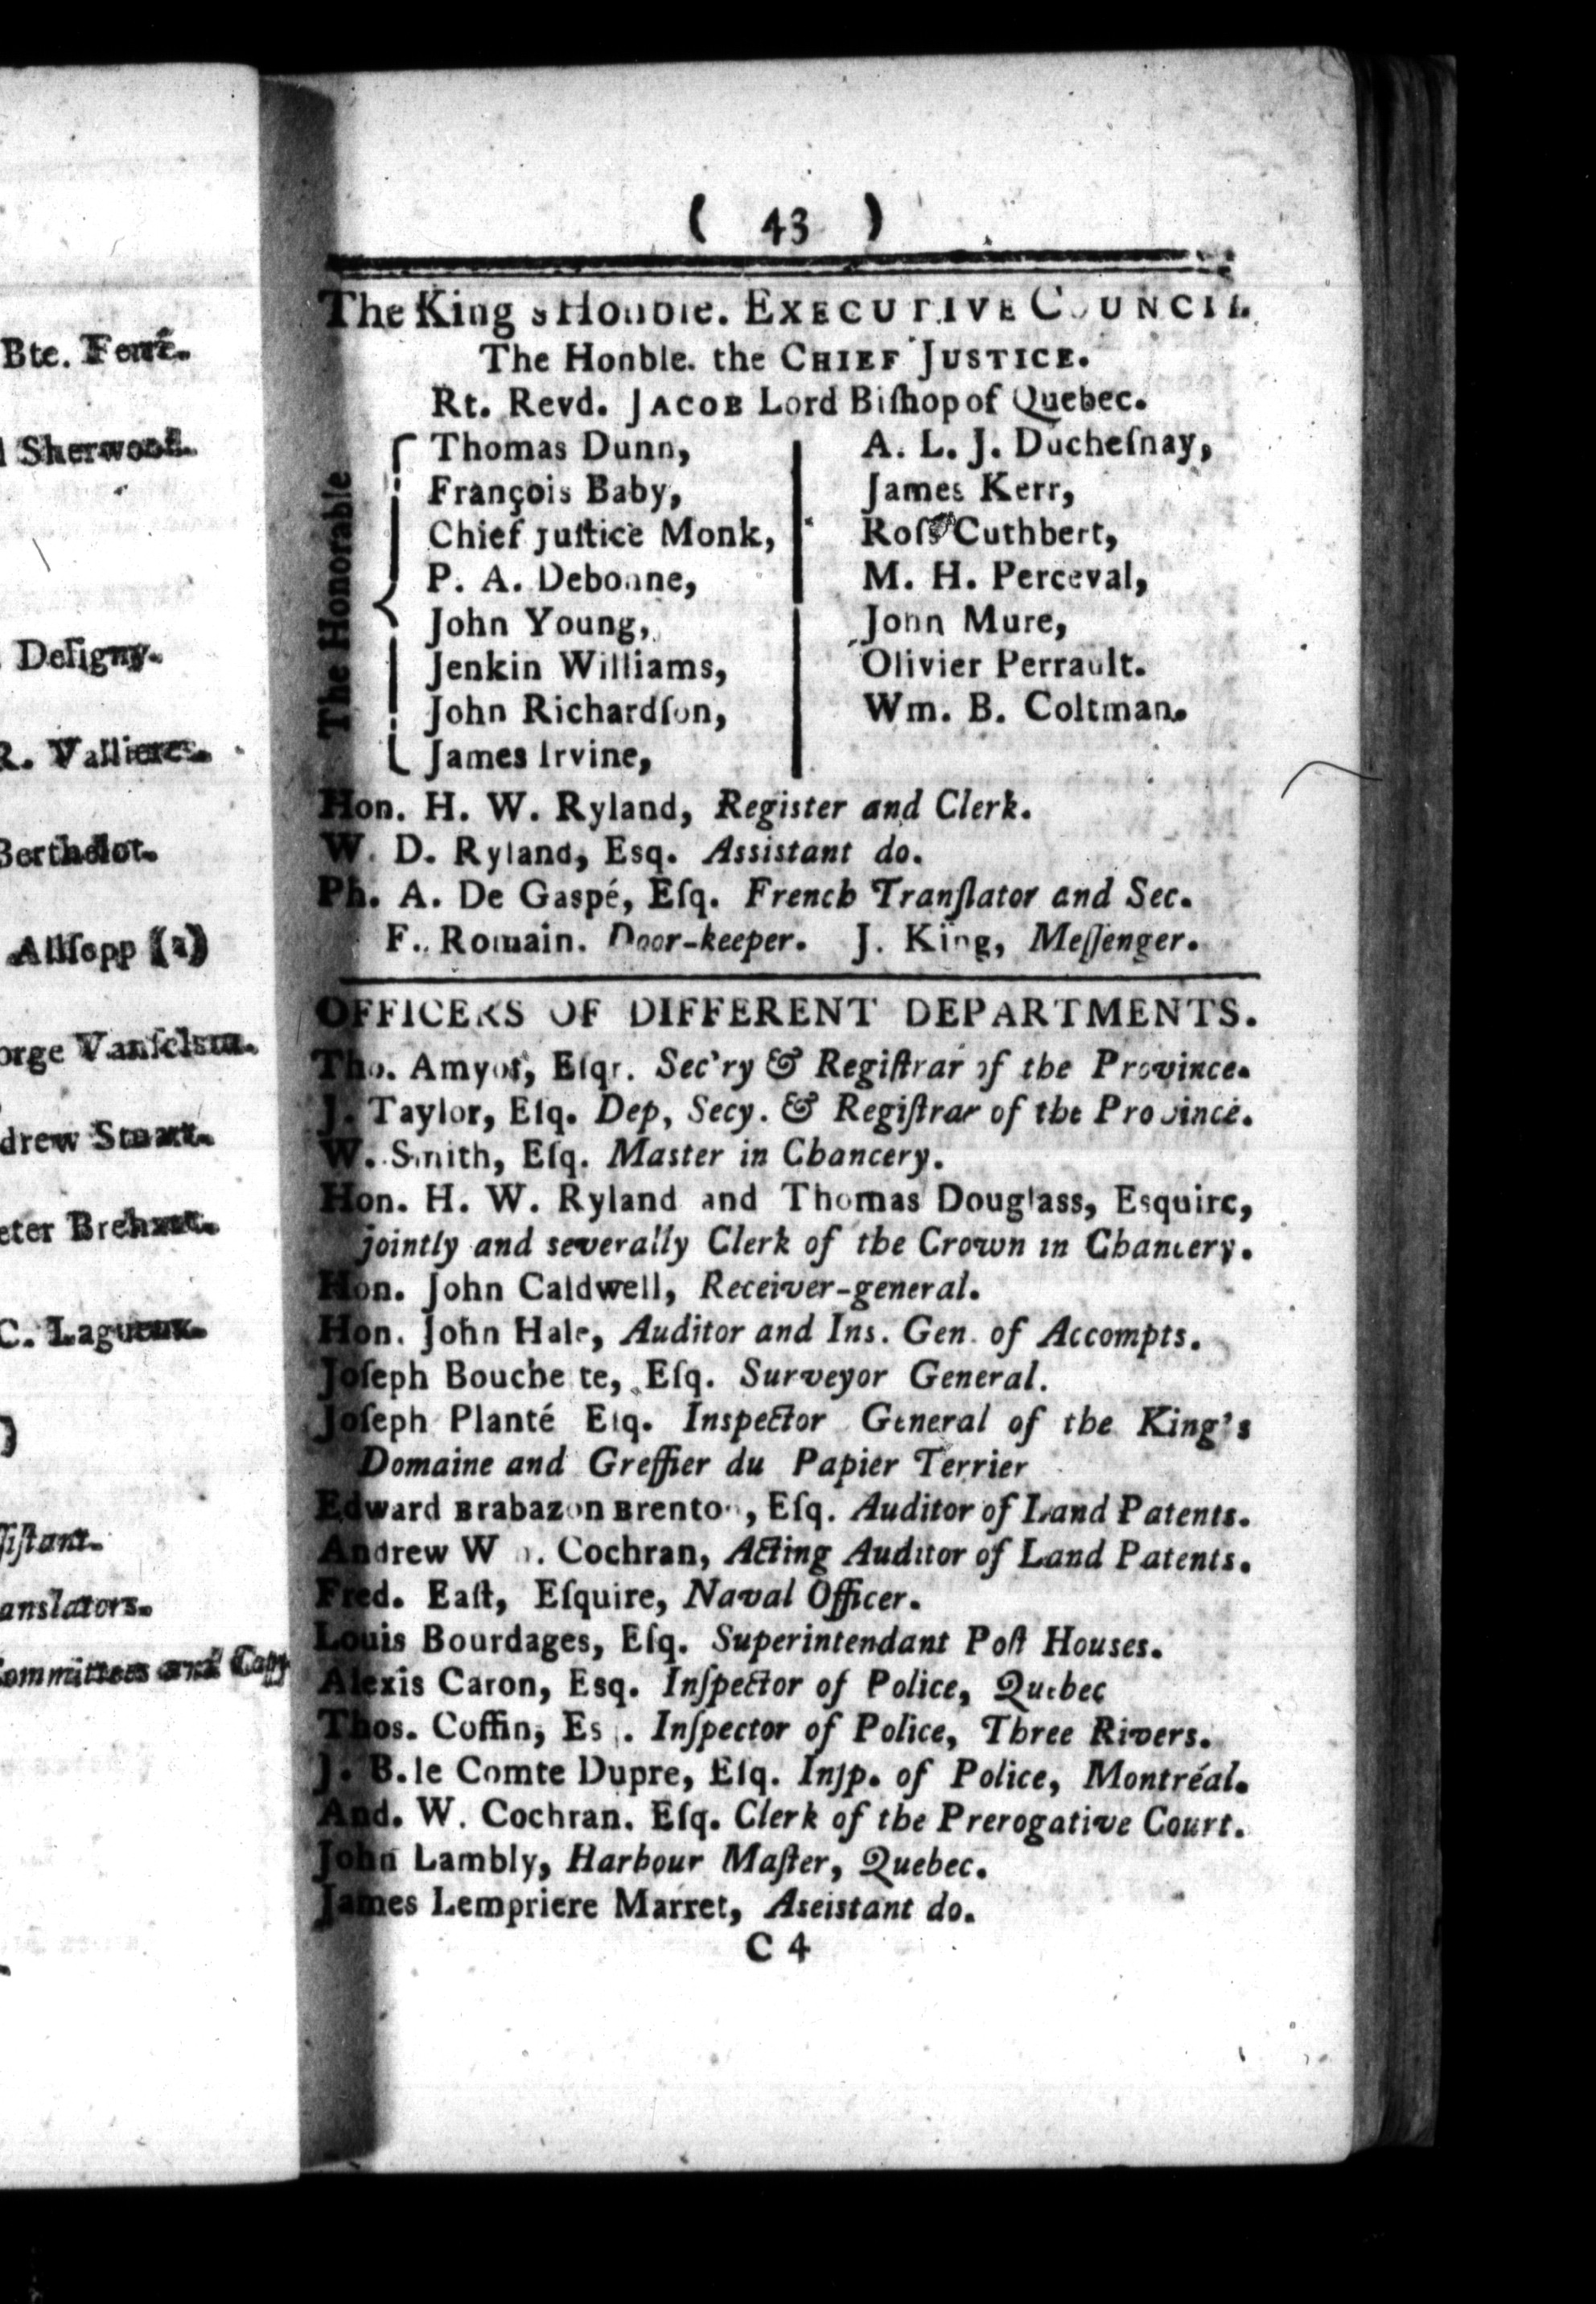 ( 43 )
The King s Honble. EXECUTIVE COUNCIL.
The Honble. the CHIEF JUSTICE.
Rt. Revd. JACOB Lord Biſhop of Quebec.
The Honorable
Thomas Dunn,
François Baby,
Chief Juſtice Monk,
P. A. Debonne,
John Young,
Jenkin Williams,
John Richardſon,
James Irvine,
A. L. J. Ducheſnay,
James Kerr,
Roſs Cuthbert,
M. H. Perceval,
John Mure,
Olivier Perrault.
Wm. B. Coltman.
Hon. H. W. Ryland, Register and Clerk.
W. D. Ryland, Esq. Assistant do.
Ph. A. De Gaspé, Eſq. French Tranſlator and Sec.
F. Romain. Door-keeper. J. King, Meſſenger.
OFFICERS OF DIFFERENT DEPARTMENTS.
Tho. Amyot, Eſqr. Sec'ry & Regiſtrar of the Province.
J. Taylor, Eſq. Dep, Secy. & Regiſtrar of the Province.
W. Smith, Eſq. Master in Chancery.
Hon. H. W. Ryland and Thomas Douglass, Esquire,
jointly and severally Clerk of the Crown in Chancery.
Hon. John Caldwell, Receiver-general.
Hon. John Hale, Auditor and Ins. Gen. of Accompts.
Joſeph Bouchette, Eſq. Surveyor General.
Joſeph Planté Eſq. Inspector General of the King's
Domaine and Greffier du Papier Terrier
Edward Brabazon Brenton, Eſq. Auditor of Land Patents.
Andrew Wm. Cochran, Acting Auditor of Land Patents.
Fred. Eaſt, Eſquire, Naval Officer.
Louis Bourdages, Eſq. Superintendant Poſt Houses.
Alexis Caron, Esq. Inſpector of Police, Quebec
Thos. Coffin, Esq. Inſpector of Police, Three Rivers.
J. B. le Comte Dupre, Eſq. Inſp. of Police, Montréal.
And. W. Cochran. Eſq. Clerk of the Prerogative Court.
John Lambly, Harbour Maſter, Quebec.
James Lempriere Marret, Aseistant do.
C 4
Bte. Ferré.
Sherwood.
Deſigny.
R. Vallieres.
Berthelot.
Allſopp (a)
orge Vanfelson.
drew Stuart.
eter Brehaut.
C. Lagueux.
ſſiſtant.
anslators.
ommittees and Copy